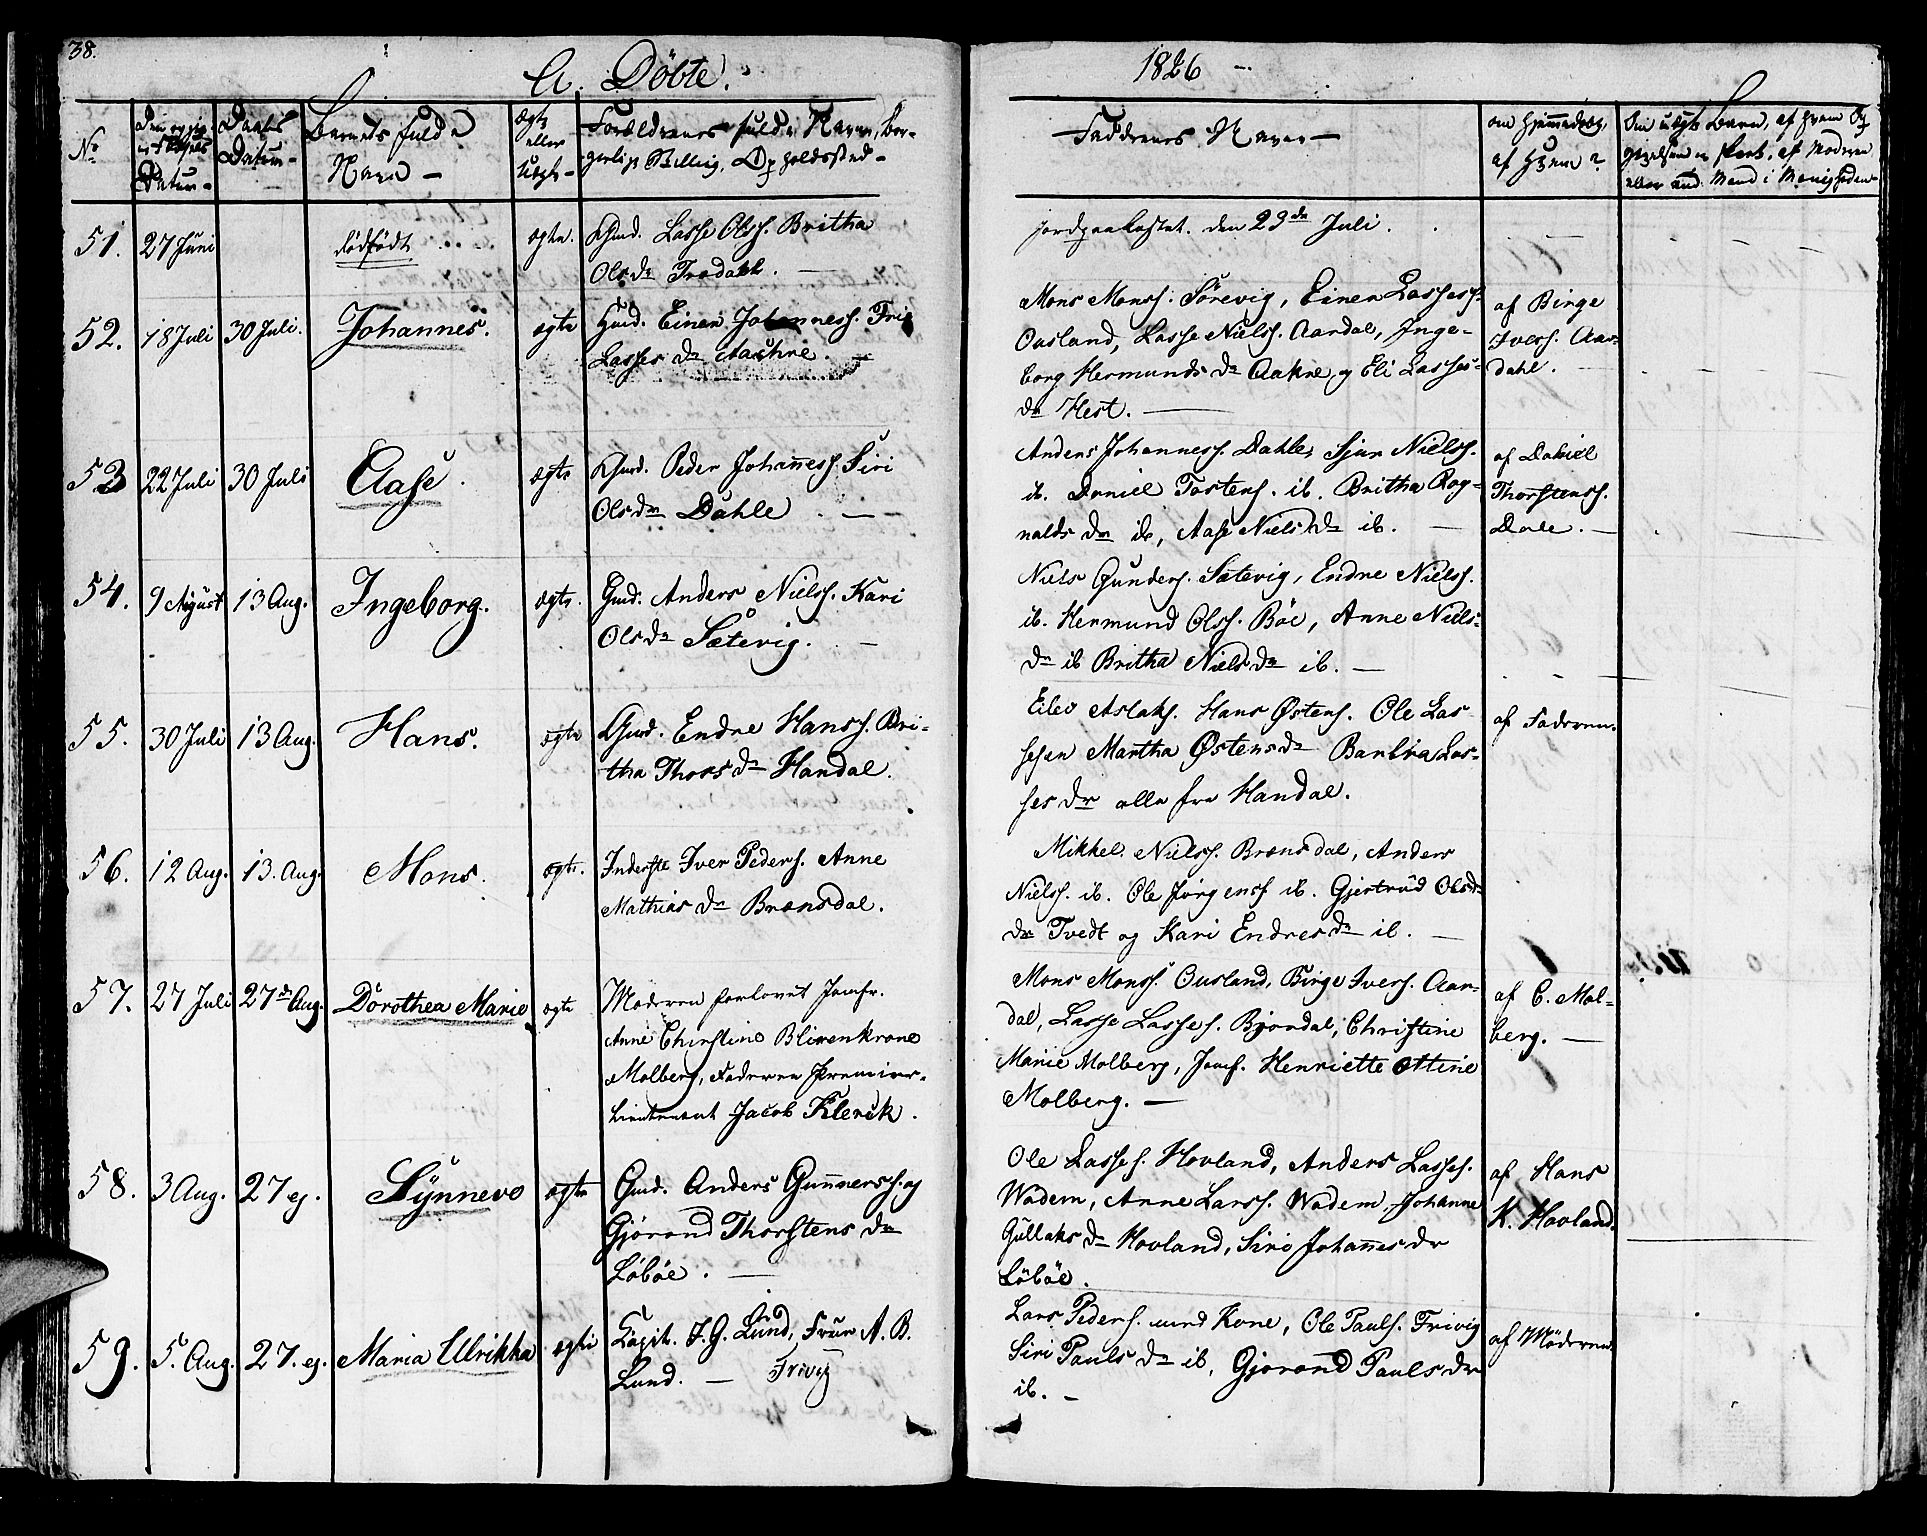 38.
A. Döbte.
1826
No
Datum
Daabs Datum
Barnets fulde Navn
ægte eller uægte
Forældrenes fulde Navn, Borgerlige Stilling, Opholdssted
Faddernes Navne
om hjemmedøbt, af Hvem?
51. 27 Juni
dödfödt
ægte.
Gmd. Lasse Olss. Britha
Olsdr Tredahl.
jordpaakastet den 23de Juli.
52. 18 Juli 30 Juli.
Johannes.
ægte
Gmd. Einer Johanness.
Lassesdr Aachre.
Mons Monss. Sörevig, Einer Lassess.
Ousland, Lasse Nielss. Aardal, Inge-
borg Hermundsdr Aakre, og Eli Lasses-
dr Hest.
af Birge
Iverss. Aar-
dahl.
53 22 Juli 30 Juli
Aase.
ægte
Gmd. Peder Johañess. Siri
Olsdr Dahle
Anders Johanness. Dahle, Sjur Nielss.
ib. Daniel Tostens. ib. Britha Rog-
naldsdr ib, Aase Nielsdr ib.
af Daniel
Thorstenss.
Dale.
54. 9 August 13 Aug.
Ingeborg.
ægte.
Gmd. Anders Nielss. Kari
Olsdr Sætevig.
Niels Gunders. Sætevig, Endre Nielss.
ib. Hermund Olss. Böe, Anne Niels-
dr ib Britha Nielsdr ib.
55. 30 Juli 13 Aug.
Hans.
ægte
Gmd. Endre Hanss. Bri-
tha Thorsdr Handal.
Eilev Aslaks. Hans Østens. Ole Las-
sesen Martha Østensdr Barbra Las-
sesdr alle fra Handal.
af Faderen.
56. 12 Aug. 13. Aug.
Mons.
ægte.
Inderste Iver Peders. Anne
Mathiasdr Brænsdal.
Mikkel Nielss. Brænsdal, Anders
Nielss. ib. Ole Jörgens ib. Gjertrud Ols
dr Tvedt og Kari Endresdr ib.
57. 27 Juli 27de Aug.
Dorothea Marie
ægte
Moderen forlovet Jomfr.
Anne Christine Blixenkrone
Molberg, Faderen Premier-
Lieutenant Jacob Klerck.
Mons Monss. Ousland, Birge Iverss. Aar-
dal, Lasse Lasses. Bjordal, Christine
Marie Molberg, Jomf. Henriette Ottine
Molberg.
af C. Mol-
berg.
58. 3 Aug. 27 ej.
Synnevo
ægte
Gmd. Anders Guñerss. og
Gjörond Thorstensdr
Löböe.
Ole Lasses. Hovland, Anders Lasses.
Wadem, Anne Larss. Wadem, Johanne
Gullaksdr Hovland, Siri Johañesdr
Löböe.
af Hans
K. Hovland.
59. 5. Aug. 27. ej.
Maria Ulrikka
ægte
Capit. J. G. Lund, Frue A. B.
Lund. Trivig
Lars Peders. med Kone, Ole Pauls. Trivig
Siri Paulsdr ib, Gjorond Paulsdr
ib.
af Moderen.